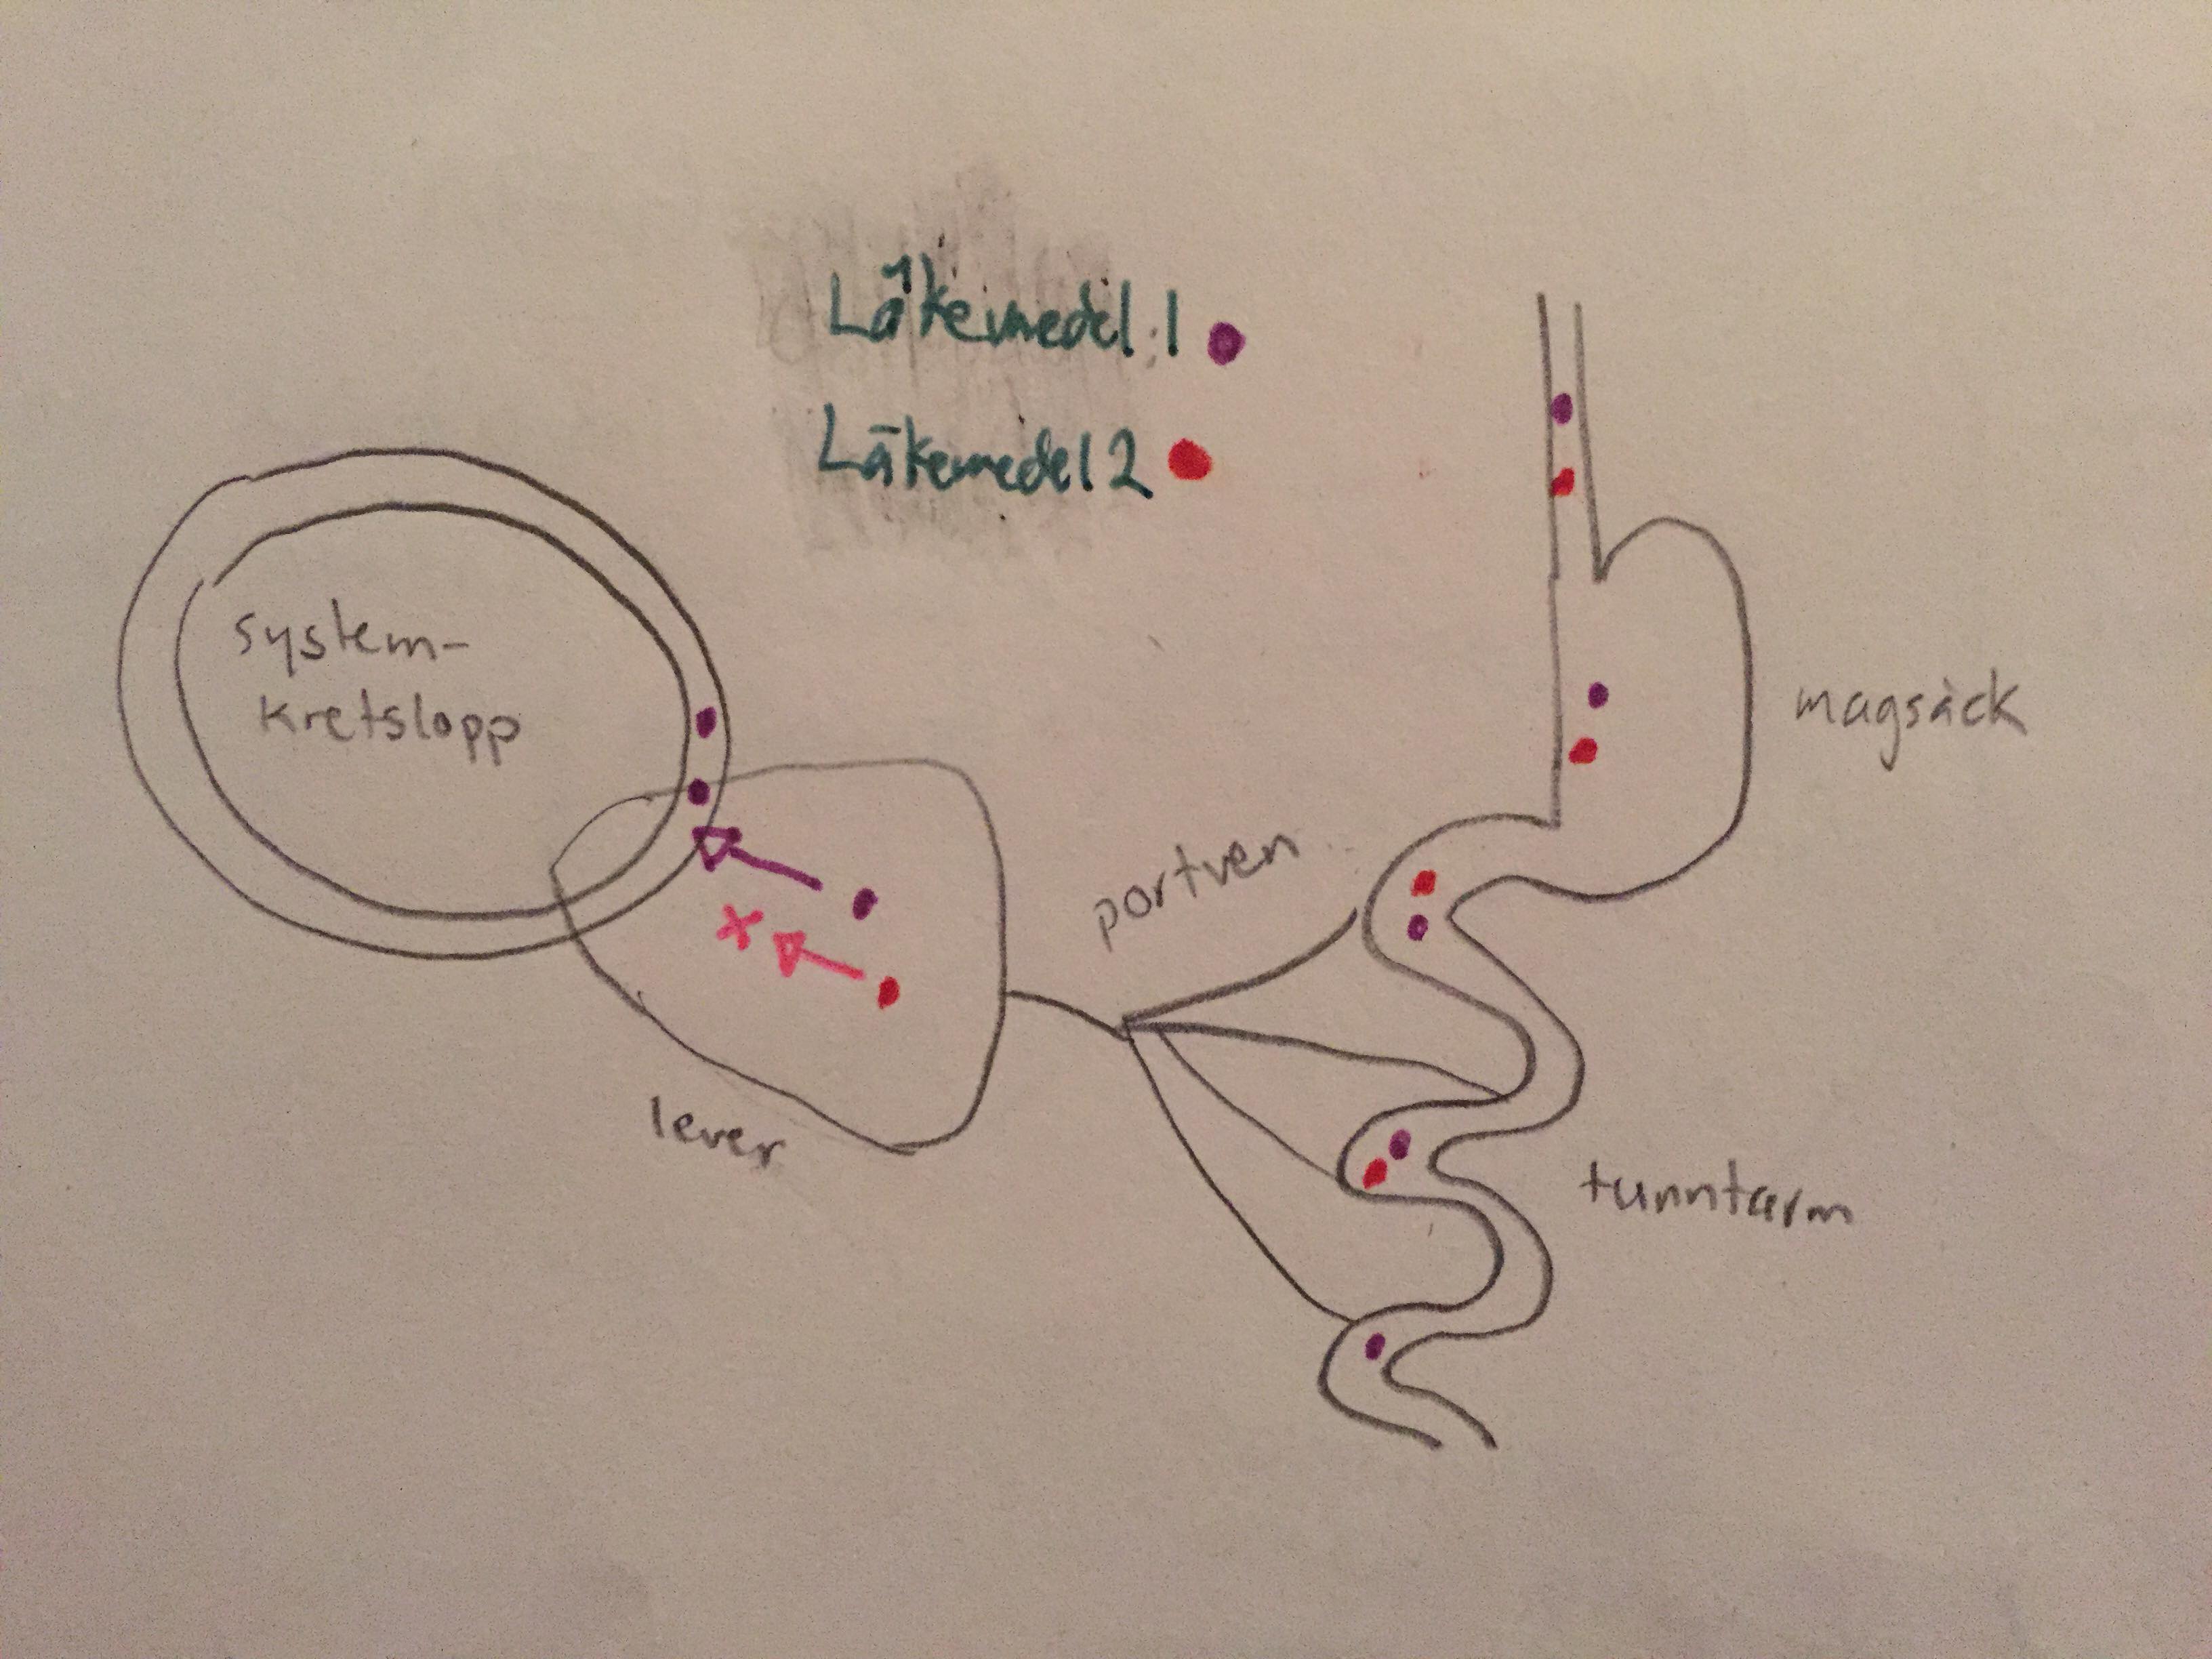 Läkemedel 1
Läkemedel 2
system-
kretslopp
magsäck
portven
lever
tunntarm